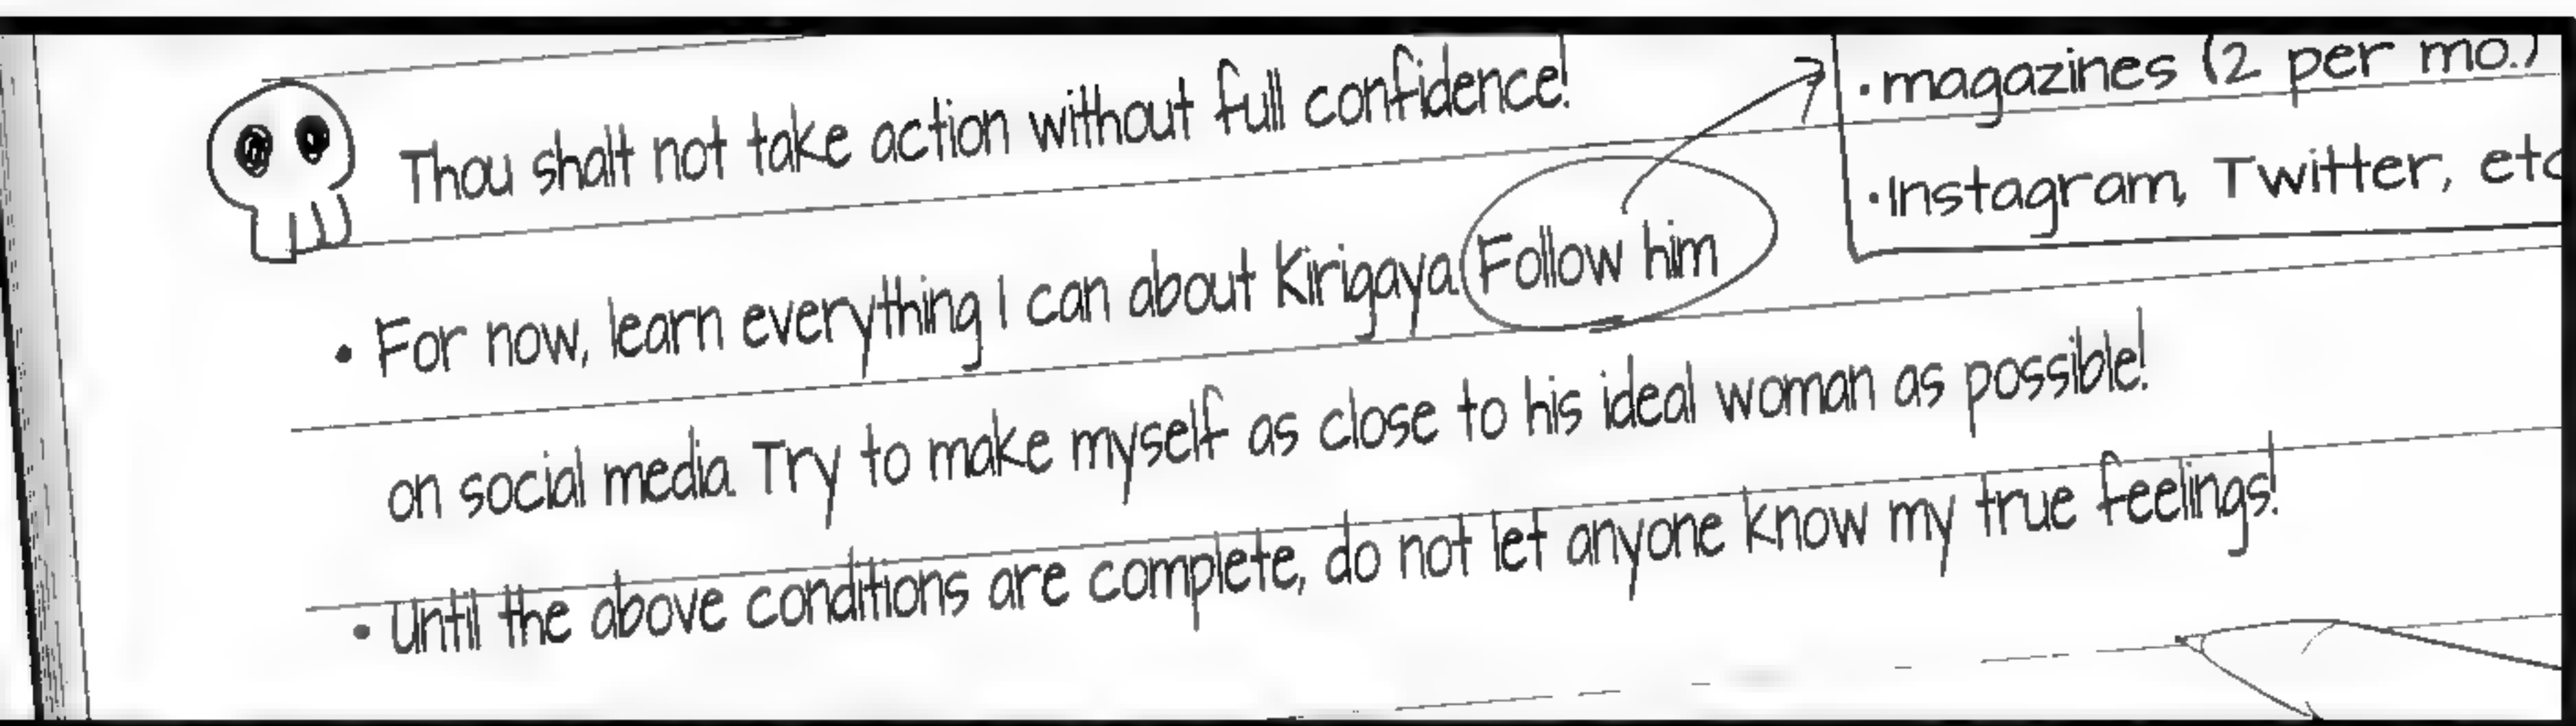 Thou shalt not take action without full confidence!
• magazines (2 per mo.)
• Instagram, Twitter, etc
• For now, learn everything I can about Kirigaya. Follow him
on social media. Try to make myself as close to his ideal woman as possible!
• Until the above conditions are complete, do not let anyone know my true feelings!